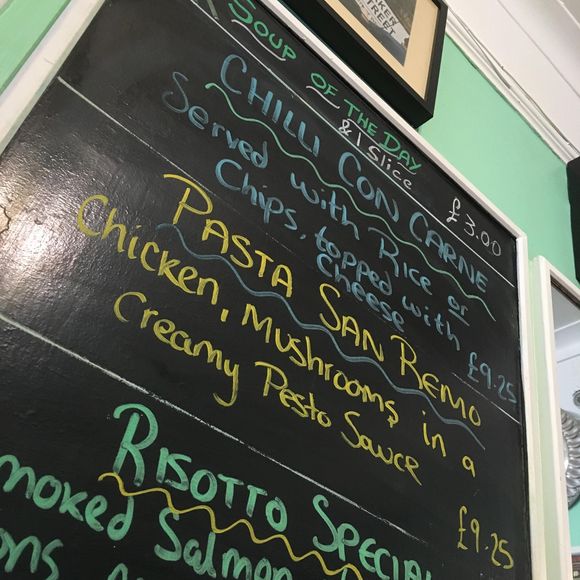 SOUP OF THE DAY
& 1 Slice £3.00
CHILLI CON CARNE
Served with Rice or
Chips, topped with
Cheese £9.25
PASTA SAN REMO
Chicken, Mushrooms in a
Creamy Pesto Sauce
£9.25
RISOTTO SPECIAL
moked Salmon
STREET